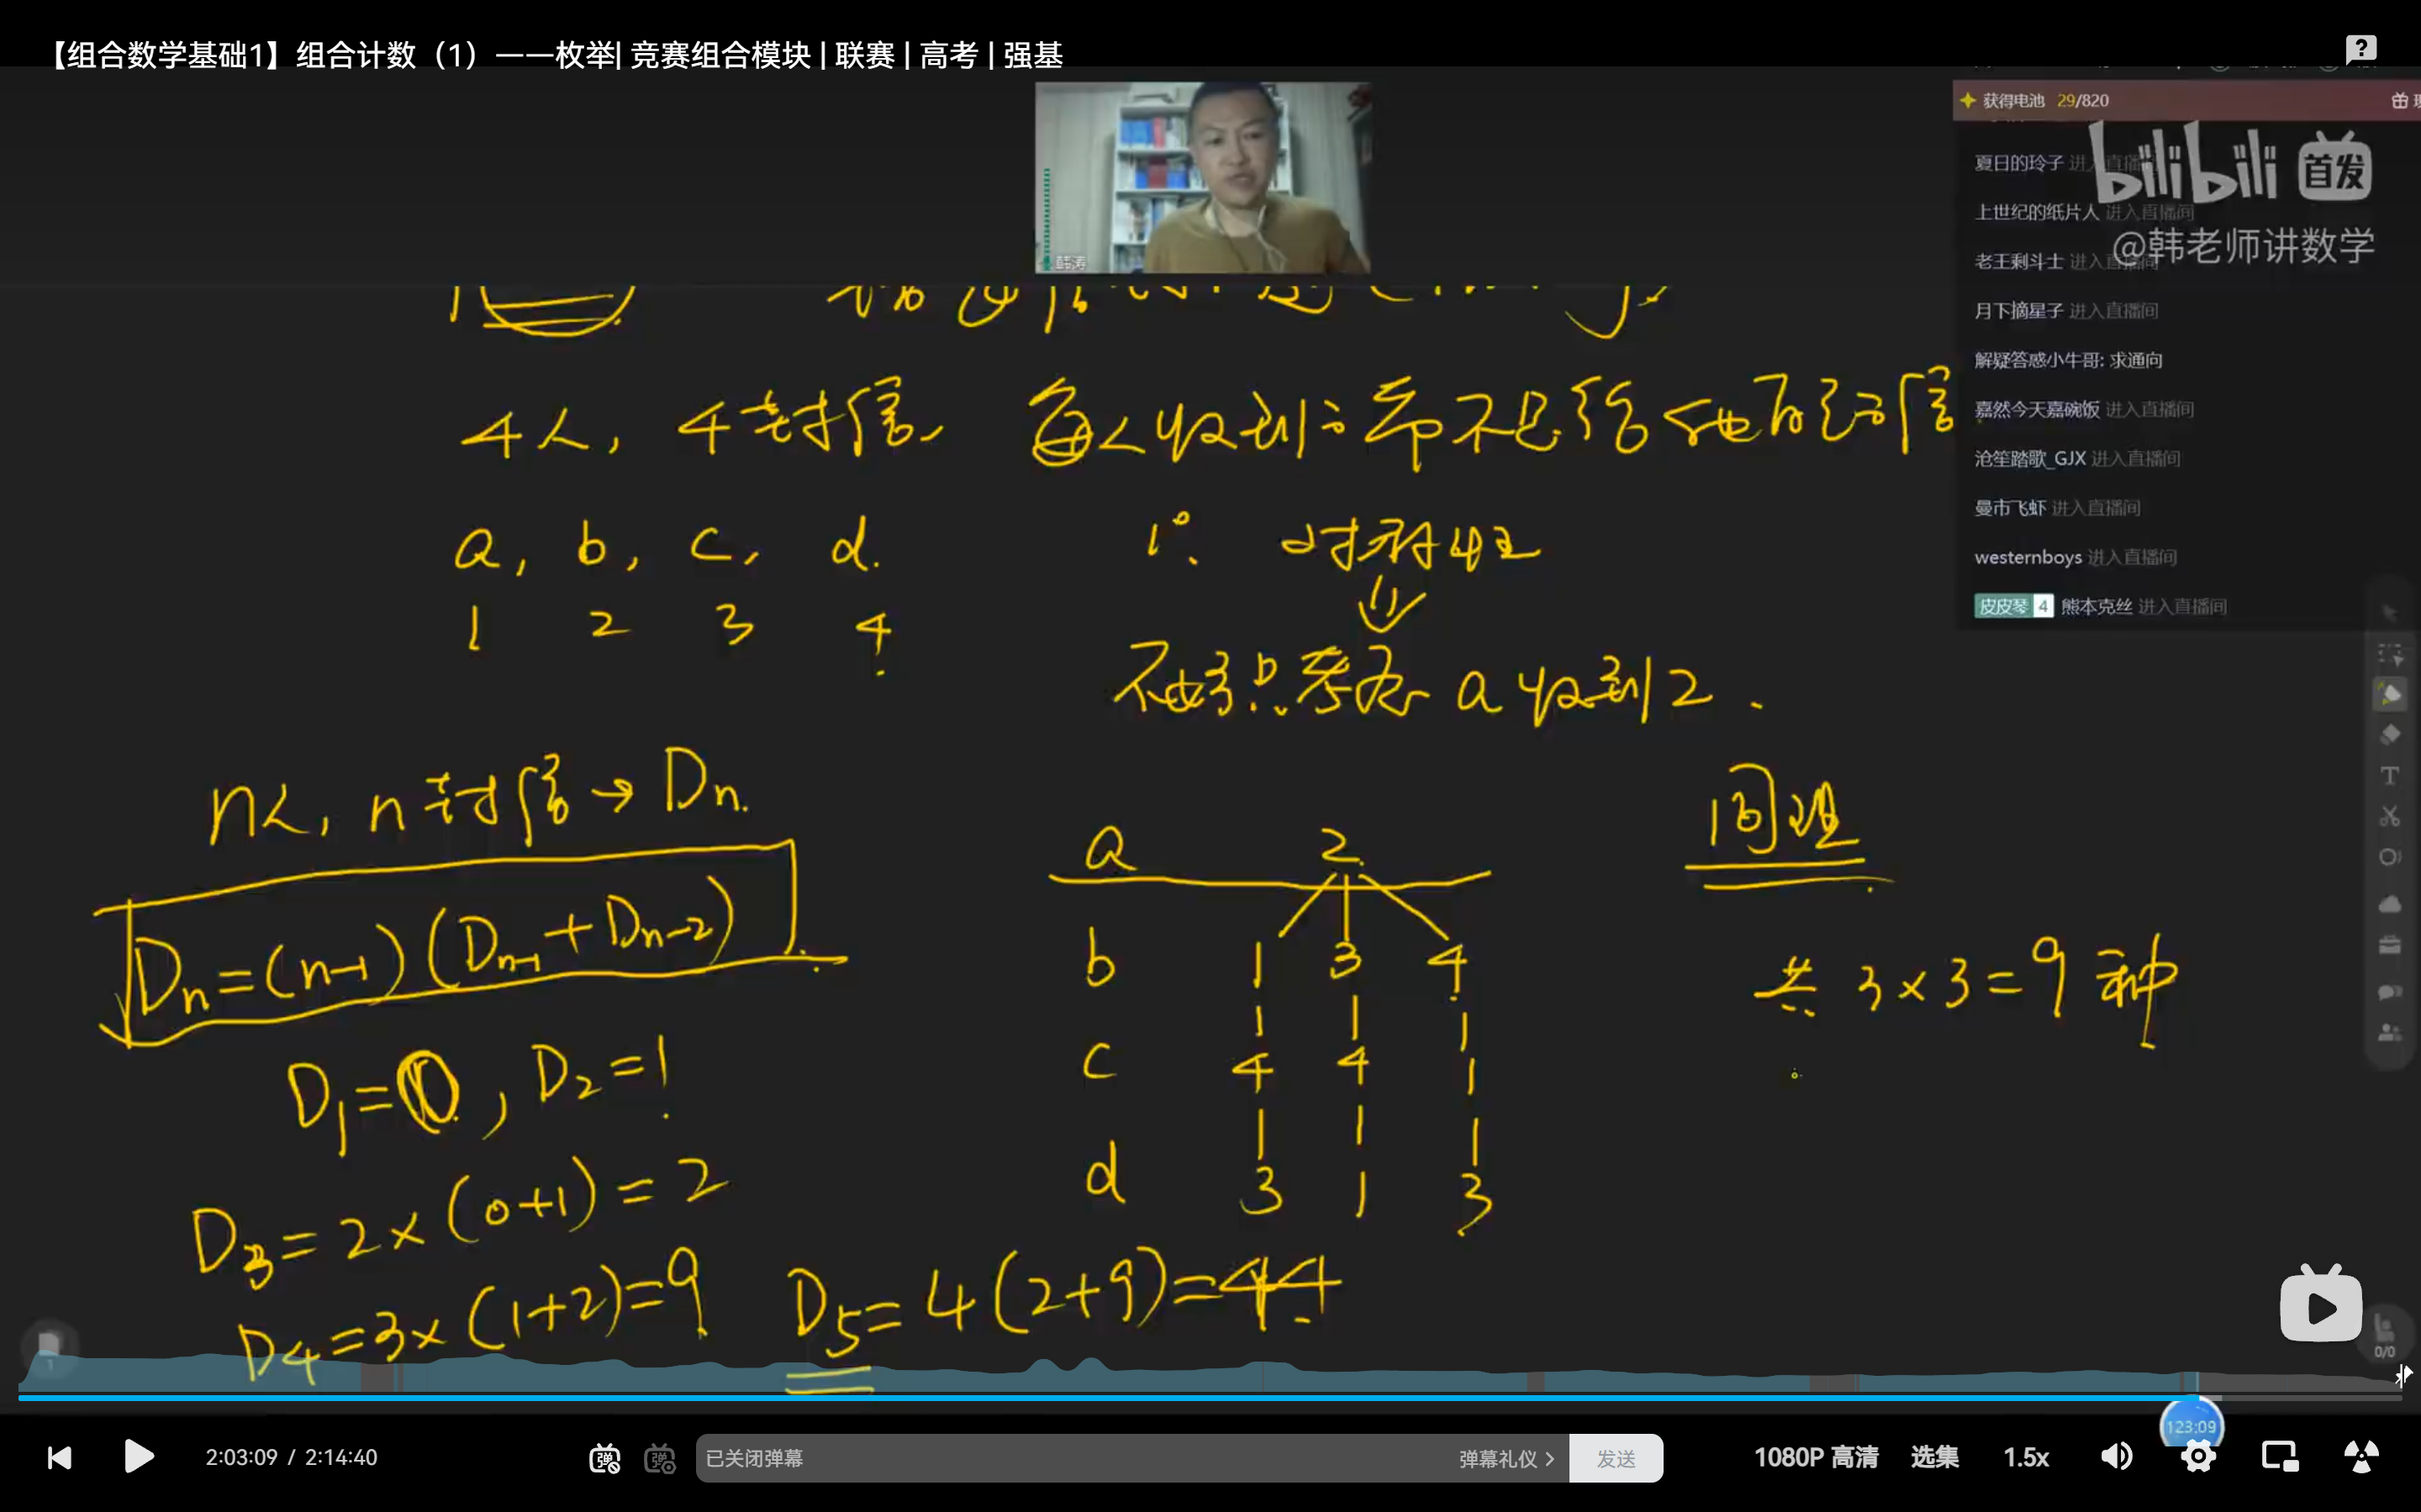 【组合数学基础1】组合计数（1）——枚举| 竞赛组合模块 | 联赛 | 高考 | 强基
获得电池 29/820
夏日的玲子 进入直播间
bilibili 首发
上世纪的纸片人 进入直播间
@韩老师讲数学
老王剩斗士 进入直播间
月下摘星子 进入直播间
解疑答惑小牛哥: 求通向
嘉然今天嘉碗饭 进入直播间
沧笙踏歌_GJX 进入直播间
曼市飞虾 进入直播间
westernboys 进入直播间
皮皮琴 4 熊本克丝 进入直播间
韩涛
4人, 4封信, 每人收到的都不是给他自己的信
a, b, c, d.
1 2 3 4
1°. 对称性
⇓
不妨只考虑 a 收到 2.
n人, n封信 → Dn.
Dn=(n-1)(Dn-1+Dn-2)
D1=0, D2=1
D3=2×(0+1)=2
D4=3×(1+2)=9
D5=4(2+9)=44
a 2
b 1 3 4
c 4 4 1
d 3 1 3
同理
共 3×3=9 种
0/0
1
123:09
2:03:09 / 2:14:40
弹 弹
已关闭弹幕
弹幕礼仪 >
发送
1080P 高清
选集
1.5x